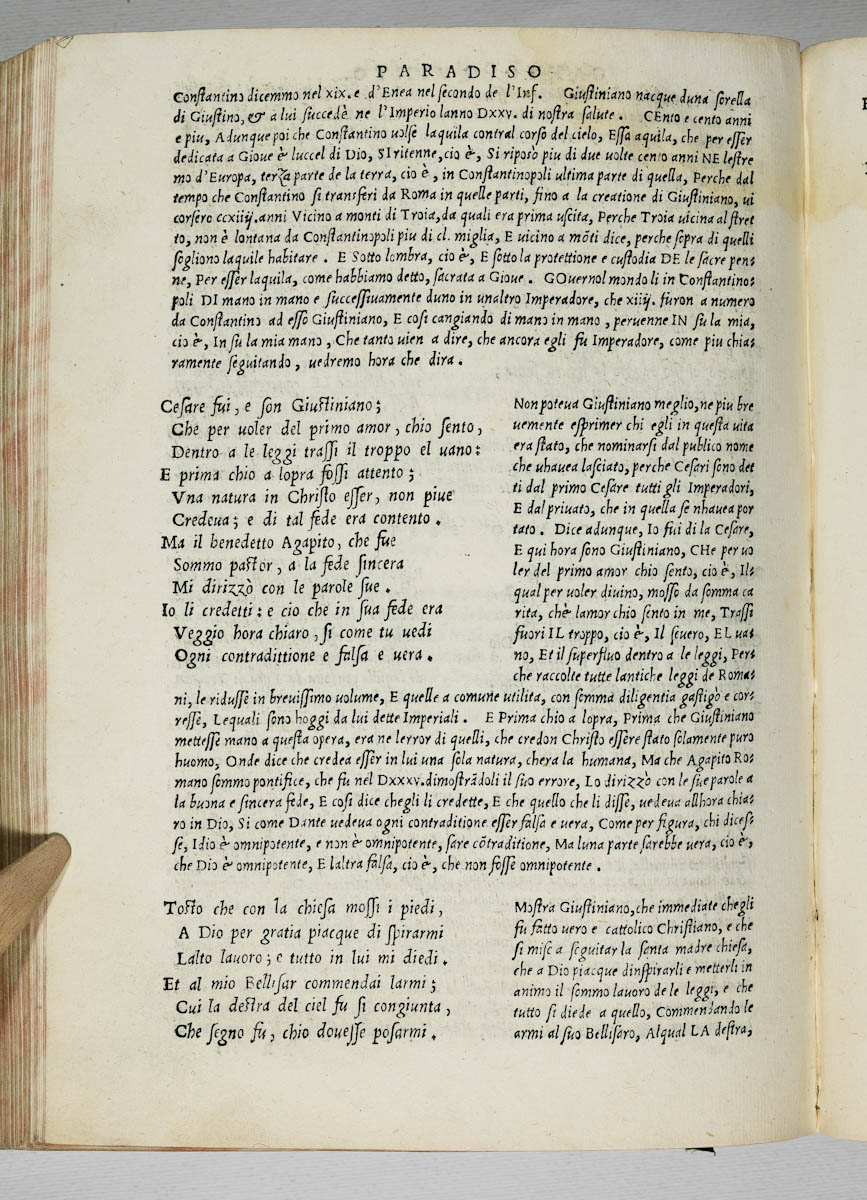 PARADISO
Constantino dicemmo nel xix. e d'Enea nel secondo de l'Inf. Giustiniano nacque duna sorella
di Giustino, & a lui succedè ne l'Imperio lanno Dxxv. di nostra salute. CEnto e cento anni
e piu, Adunque poi che Constantino uolse laquila contral corso del cielo, Essa aquila, che per esser
dedicata a Gioue è luccel di Dio, SI ritenne, cio è, Si riposò piu di due uolte cento anni NE lestre
mo d'Europa, terza parte de la terra, cio è, in Constantinopoli ultima parte di quella, Perche dal
tempo che Constantino si transferi da Roma in quelle parti, fino a la creatione di Giustiniano, ui
corsero ccxiiij. anni Vicino a monti di Troia, da quali era prima uscita, Perche Troia uicina al stret
to, non è lontana da Constantinopoli piu di cl. miglia, E uicino a mōti dice, perche sopra di quelli
sogliono laquile habitare. E Sotto lombra, cio è, E sotto la protettione e custodia DE le sacre pen=
ne, Per esser laquila, come habbiamo detto, sacrata a Gioue. GOuernol mondo li in Constantino=
poli DI mano in mano e successiuamente duno in unaltro Imperadore, che xiiij. furon a numero
da Constantino ad esso Giustiniano, E cosi cangiando di mano in mano, peruenne IN su la mia,
cio è, In su la mia mano, Che tanto uien a dire, che ancora egli fu Imperadore, come piu chia=
ramente seguitando, uedremo hora che dira.
Cesare fui, e son Giustiniano;
Che per uoler del primo amor, chio sento,
Dentro a le leggi trassi il troppo el uano:
E prima chio a lopra fossi attento;
Vna natura in Christo esser, non piue
Credeua; e di tal fede era contento.
Ma il benedetto Agapito, che fue
Sommo pastor, a la fede sincera
Mi dirizzò con le parole sue.
Io li credetti: e cio che in sua fede era
Veggio hora chiaro, si come tu uedi
Ogni contradittione e falsa e uera.
Non poteua Giustiniano meglio, ne piu bre
uemente esprimer chi egli in questa uita
era stato, che nominarsi dal publico nome
che uhauea lasciato, perche Cesari sono det
ti dal primo Cesare tutti gli Imperadori,
E dal priuato, che in quella se nhauea por
tato. Dice adunque, Io fui di la Cesare,
E qui hora sono Giustiniano, CHe per uo
ler del primo amor chio sento, cio è, Il=
qual per uoler diuino, mosso da somma ca
rita, chè lamor chio sento in me, Trassi
fuori IL troppo, cio è, Il seuero, EL ua=
no, Et il superfluo dentro a le leggi, Per=
che raccolte tutte lantiche leggi de Roma=
ni, le ridusse in breuissimo uolume, E quelle a comune utilita, con somma diligentia gastigò e cor=
resse, Lequali sono hoggi da lui dette Imperiali. E Prima chio a lopra, Prima che Giustiniano
mettesse mano a questa opera, era ne lerror di quelli, che credon Christo essere stato solamente puro
huomo, Onde dice che credea esser in lui una sola natura, chera la humana, Ma che Agapito Ro=
mano sommo pontifice, che fu nel Dxxxv. dimostrādoli il suo errore, Lo dirizzò con le sue parole a
la buona e sincera fede, E cosi dice chegli li credette, E che quello che li disse, uedeua allhora chia=
ro in Dio, Si come Dante uedeua ogni contraditione esser falsa e uera, Come per figura, chi dices=
se, Idio è omnipotente, e non è omnipotente, sare cōtraditione, Ma luna parte sarebbe uera, cio è,
che Dio è omnipotente, E laltra falsa, cio è, che non fosse omnipotente.
Tosto che con la chiesa mossi i piedi,
A Dio per gratia piacque di spirarmi
Lalto lauoro; e tutto in lui mi diedi.
Et al mio Bellisar commendai larmi;
Cui la destra del ciel fu si congiunta,
Che segno fu, chio douesse posarmi.
Mostra Giustiniano, che immediate chegli
fu fatto uero e cattolico Christiano, e che
si mise a seguitar la santa madre chiesa,
che a Dio piacque dinspirarli e metterli in
animo il sommo lauoro de le leggi, e che
tutto si diede a quello, Commendando le
armi al suo Bellisaro, Alqual LA destra,